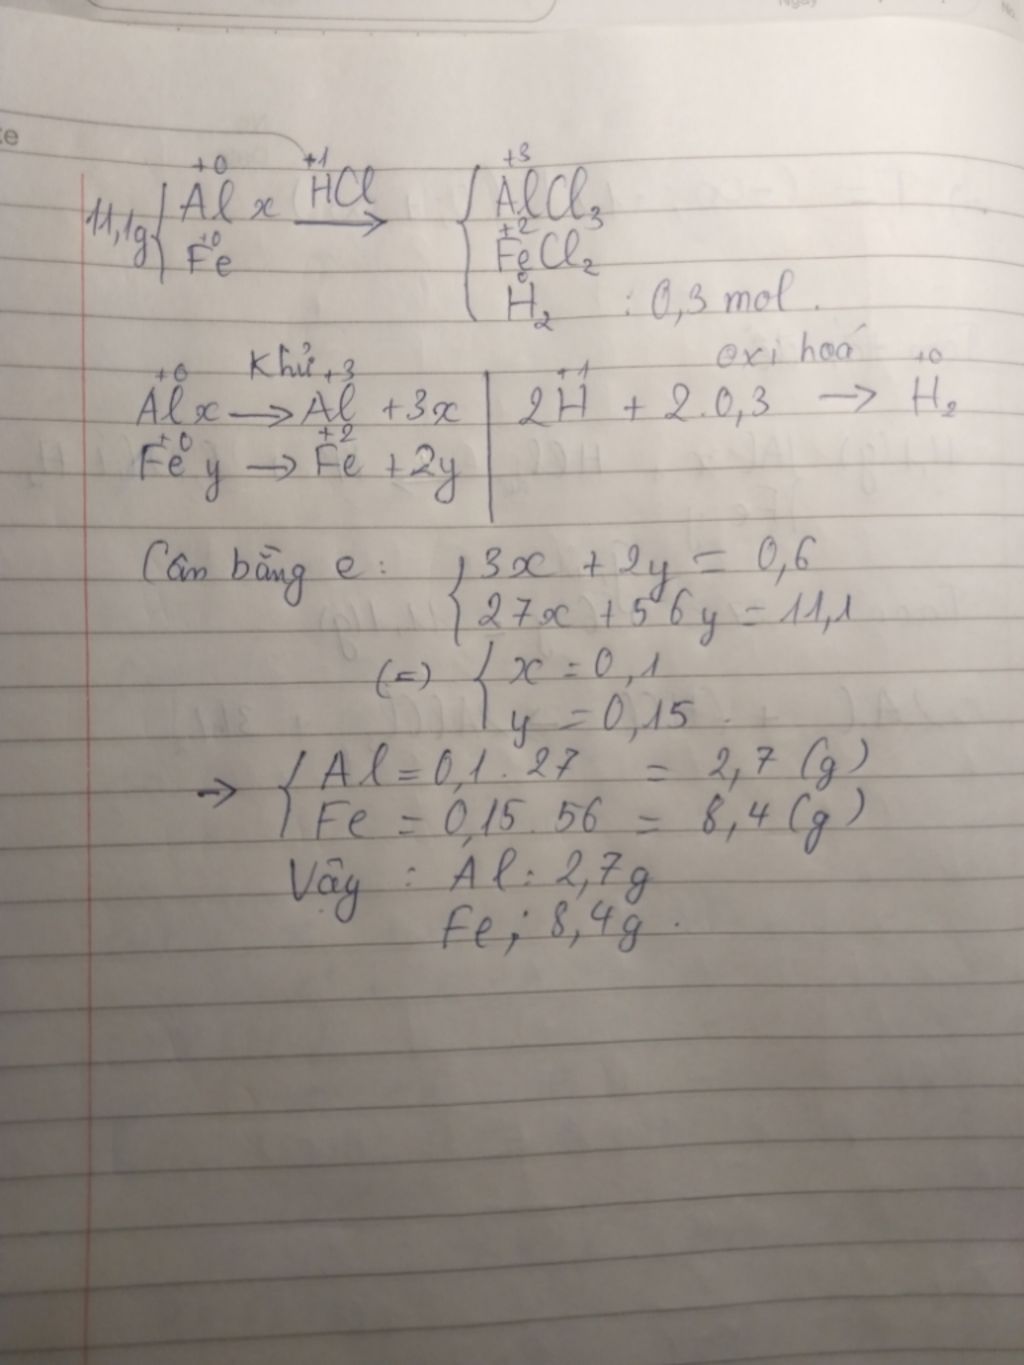 +0 +1 +3
11,1g { Al x HCl → { AlCl₃
+0 +2
Fe FeCl₂
0
H₂ : 0,3 mol.
Khử oxi hoá
+0 +3 +1 +0
Al x → Al + 3x | 2H + 2.0,3 → H₂
+0 +2
Fe y → Fe + 2y
Cân bằng e: { 3x + 2y = 0,6
27x + 56y = 11,1
(=) { x = 0,1
y = 0,15.
→ { Al = 0,1. 27 = 2,7 (g)
Fe = 0,15. 56 = 8,4 (g)
Vậy : Al: 2,7g
Fe; 8,4g.